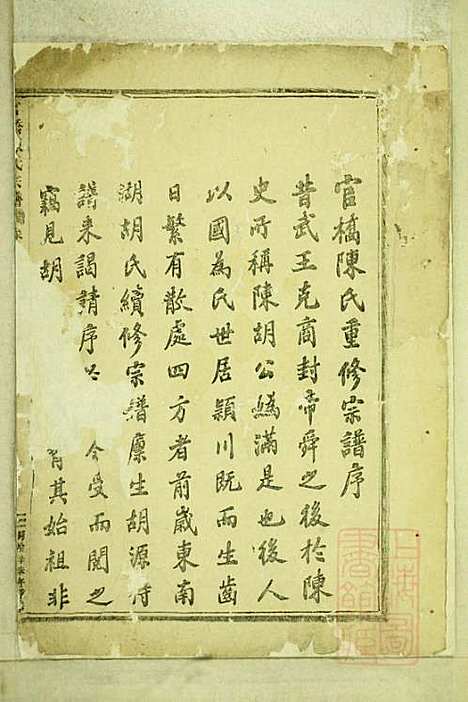 官橋陳氏重修宗譜序
昔武王克商封帝舜之後於陳
史所稱陳胡公媯滿是也後人
以國為氏世居潁川既而生齒
日繁有散處四方者前歲東南
湖胡氏續修宗譜廩生胡源
譜來謁請序 余受而閱之
竊見胡 其始祖非